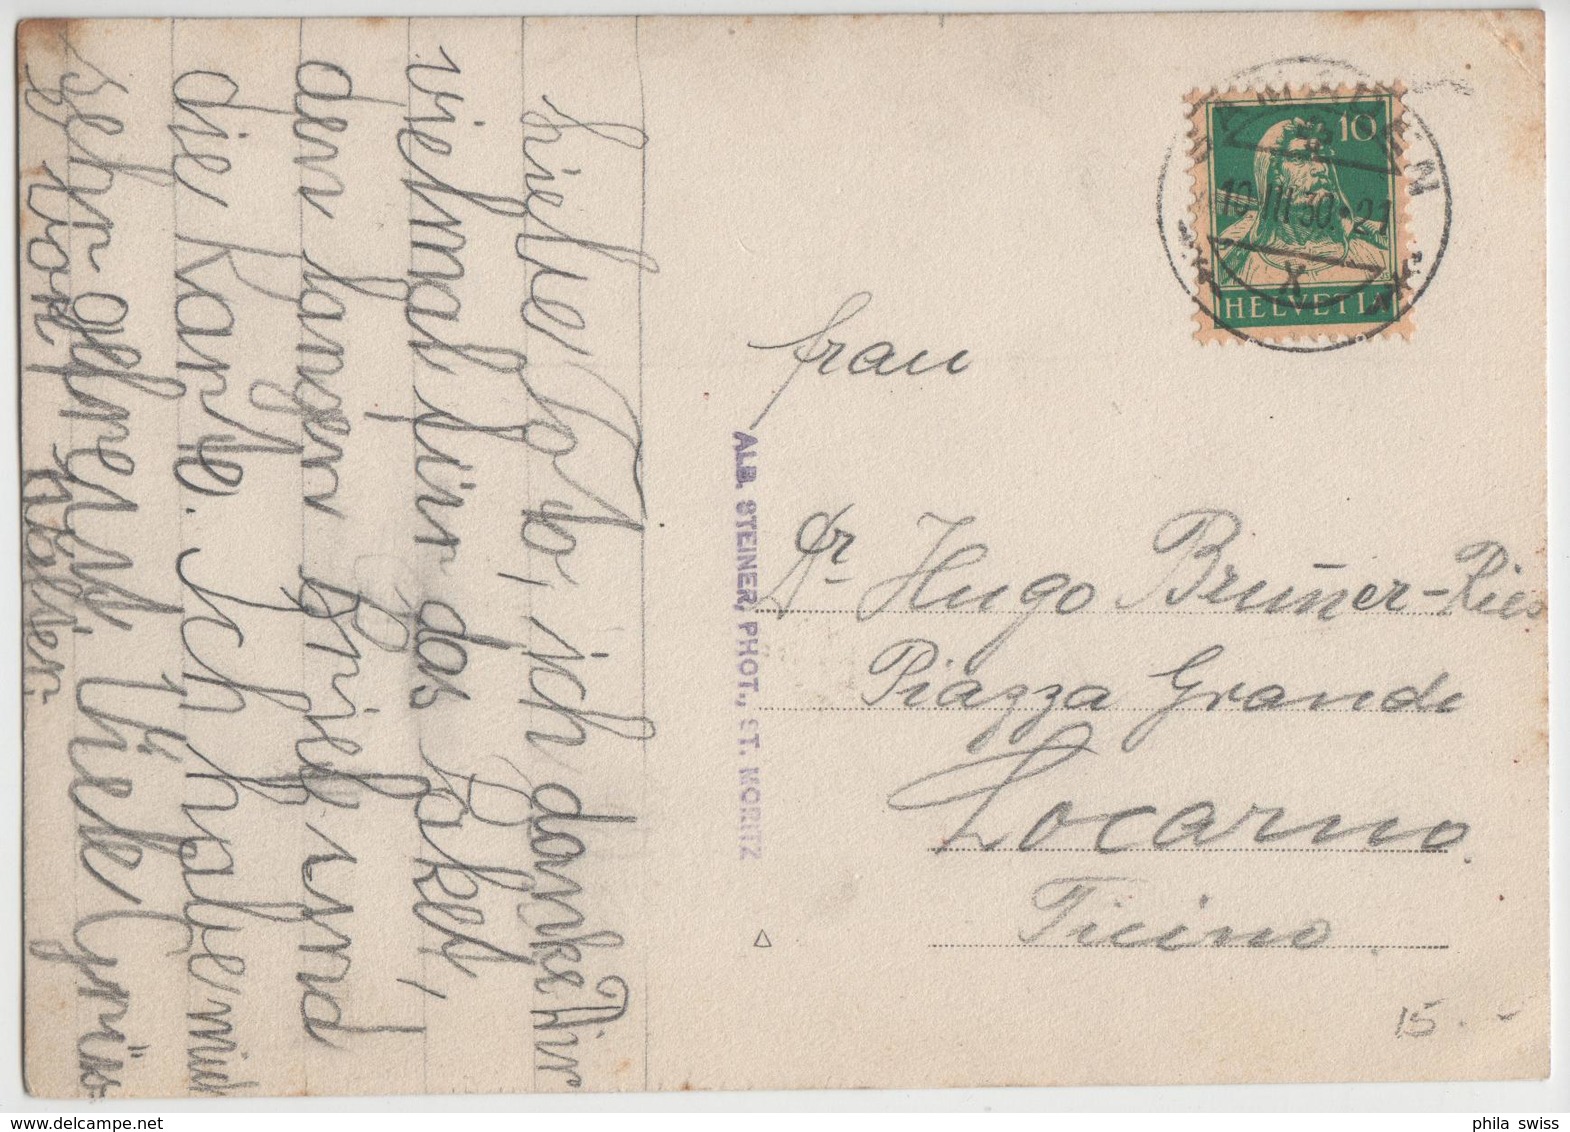 Liebe Toto, ich danke Dir
vielmal für das Paket,
den langen Brief und
die Karte. Ich habe mich
sehr gefreut Viele Grüsse
von
ALB. STEINER, PHOT., ST. MORITZ
10
10 III 30 · 21
X
HELVETIA
Frau
Dr Hugo Bruñer-Ries
Piazza Grande
Locarno
Ticino
15.-
phila swiss